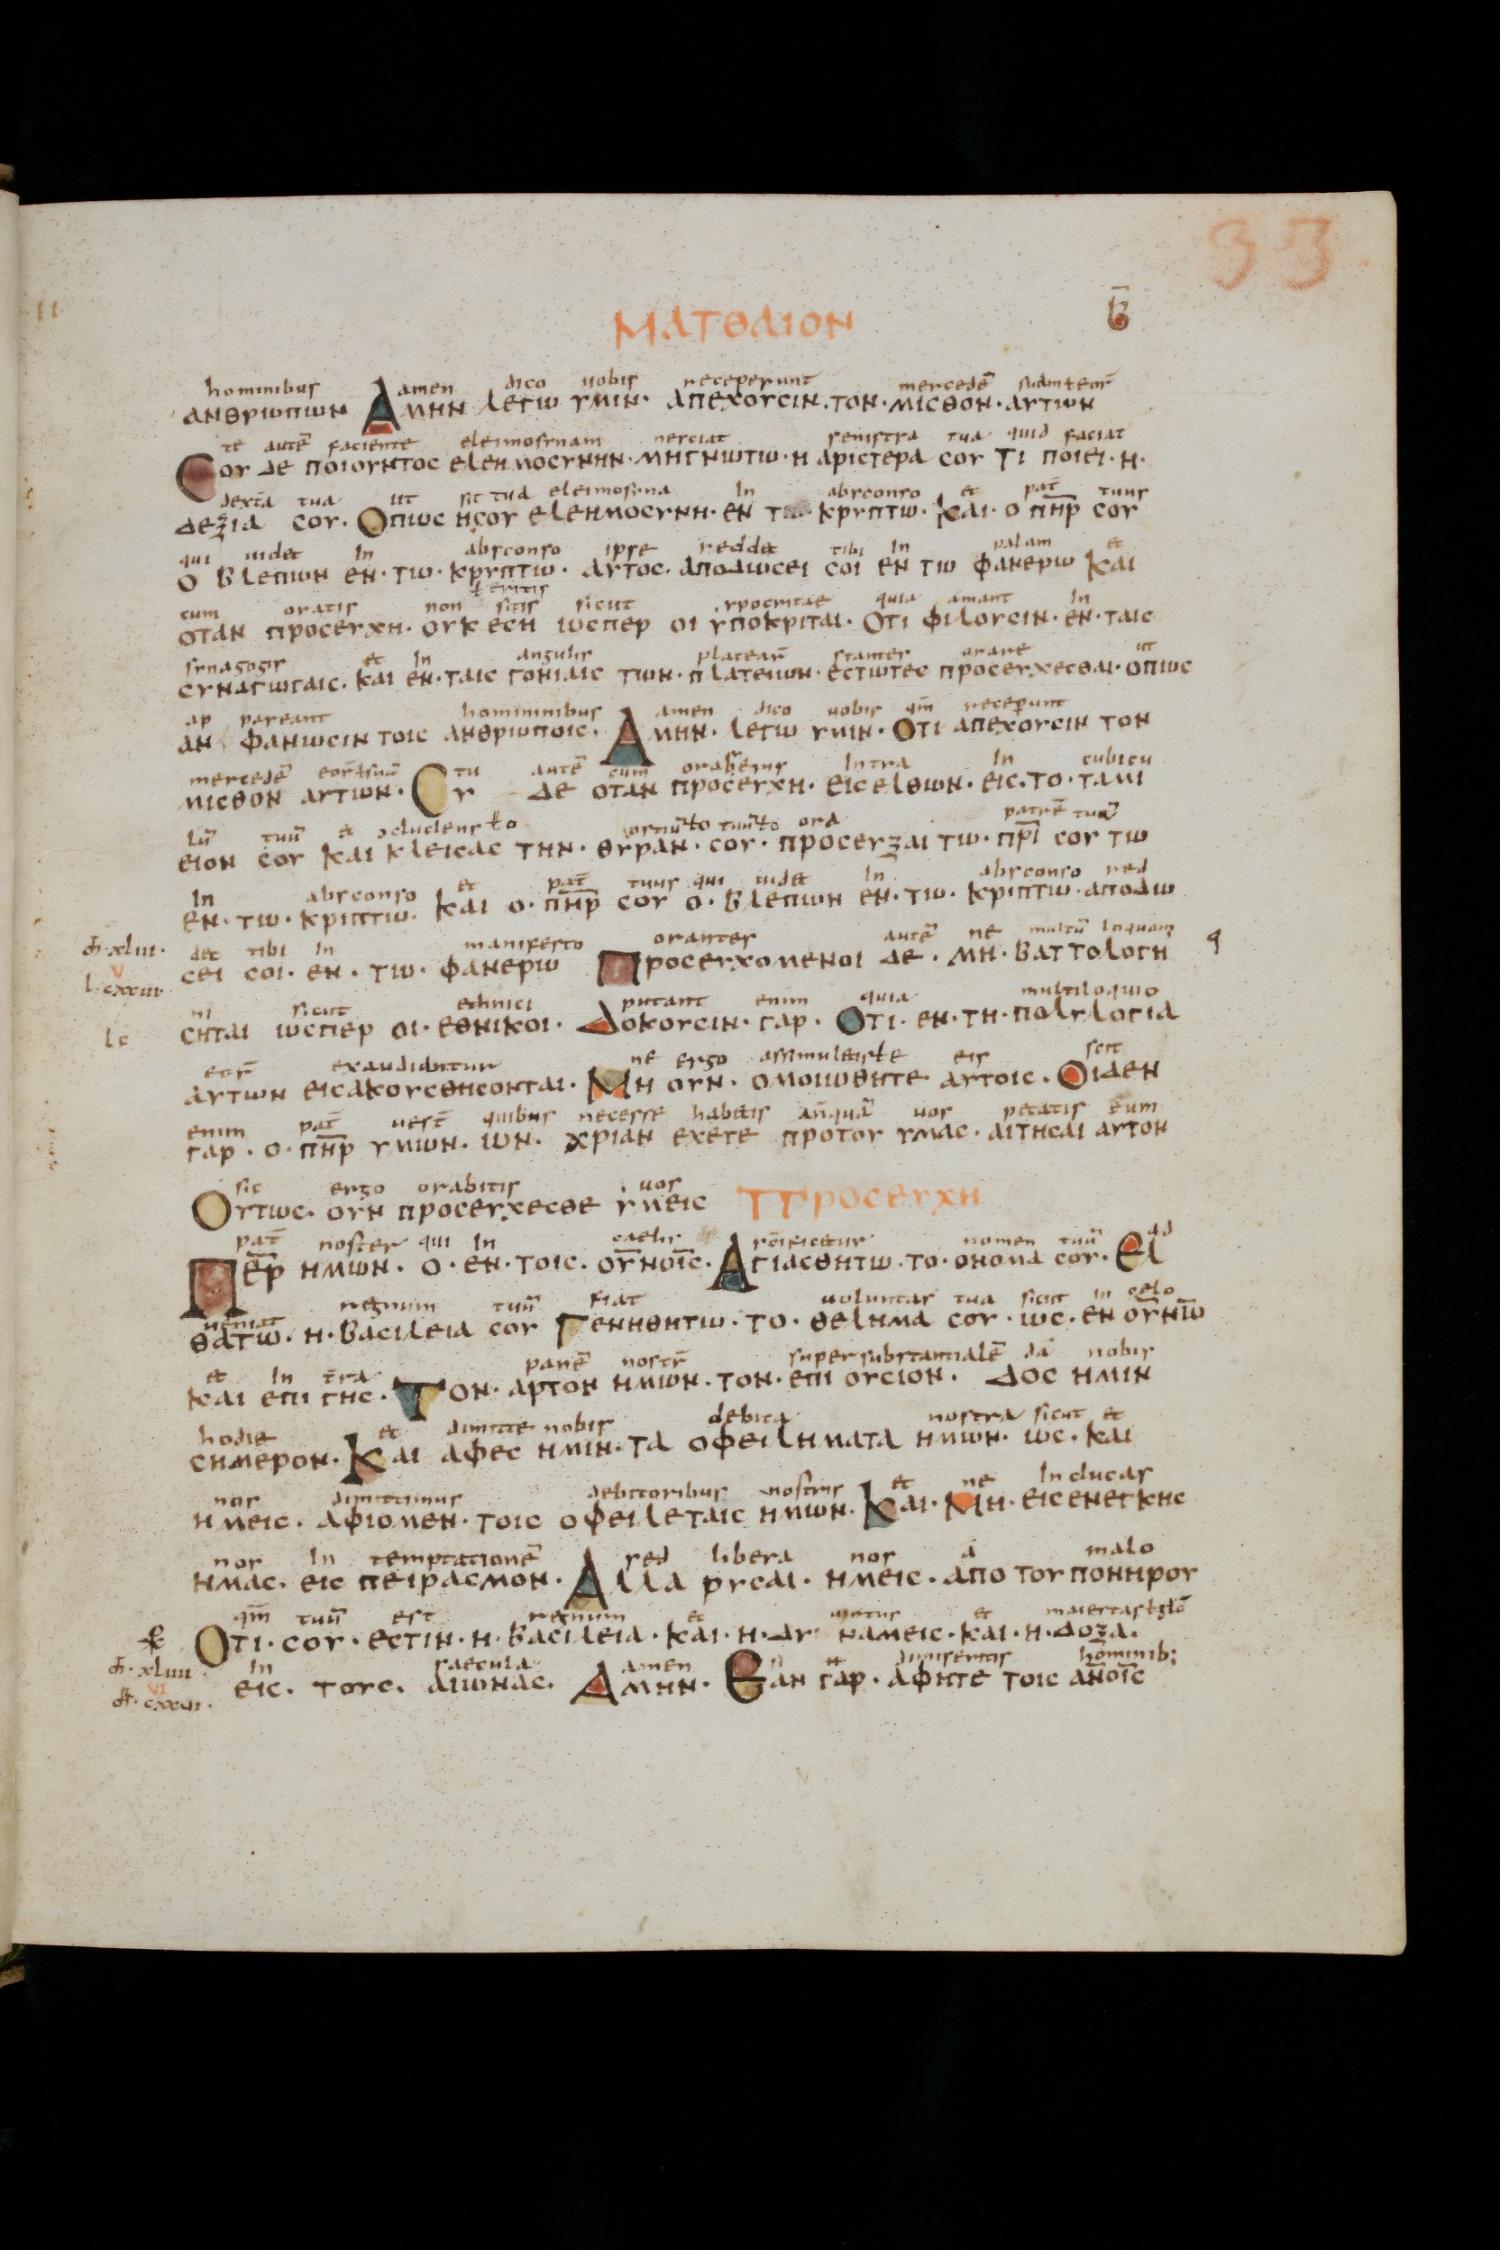 33
ΜΑΤΘΑΙΟΝ
hominibus amen dico uobis receperunt mercedē
ΑΝΘΡΙΩΠΙΩΝ ΑΜΗΝ ΛΕΓΩ ΥΜΙΝ· ΑΠΕΧΟΥCΙΝ· ΤΟΝ· ΜΙCΘΟΝ· ΑΥΤΩΝ
te autē faciente eleimosynam nesciat senistra tua quid faciat
CΟΥ ΔΕ ΠΟΙΟΥΝΤΟC ΕΛΕΗΜΟCΥΝΗΝ· ΜΗΓΝΩΤΩ· Η ΑΡΙCΤΕΡΑ CΟΥ ΤΙ ΠΟΙΕΙ· Η·
dextā tua ut sit tua eleimosina In absconso et pat̄ tuus
ΔΕΞΙΑ CΟΥ· ΟΠΩC ΗCΟΥ ΕΛΕΗΜΟCΥΝΗ· ΕΝ ΤΩ ΚΡΥΠΤΩ· ΚΑΙ· Ο ΠΗΡ CΟΥ
qui uidet In absconso ipse reddet tibi In palam et
Ο ΒΛΕΠΩΝ ΕΝ· ΤΩ· ΚΡΥΠΤΩ· ΑΥΤΟC· ΑΠΟΔΩCΕΙ CΟΙ ΕΝ ΤΩ ΦΑΝΕΡΩ ΚΑΙ
ł eritis
cum oratis non sitis sicut ypocritae quia amant In
ΟΤΑΝ ΠΡΟCΕΥΧΗ· ΟΥΚ ΕCΗ ΩCΠΕΡ ΟΙ ΥΠΟΚΡΙΤΑΙ· ΟΤΙ ΦΙΛΟΥCΙΝ· ΕΝ· ΤΑΙC
synagogis et In angulis plateaȓ stantes orare ut
CΥΝΑΓΩΓΑΙC· ΚΑΙ ΕΝ· ΤΑΙC ΓΟΝΙΑΙC ΤΩΝ· ΠΛΑΤΕΙΩΝ· ΕCΤΩΤΕC ΠΡΟCΕΥΧΕCΘΑΙ· ΟΠΩC
ap pareant hominnibus amen dico uobis qm̄ receperunt
ΑΝ ΦΑΝΩCΙΝ ΤΟΙC ΑΝΘΡΙΩΠΟΙC· ΑΜΗΝ· ΛΕΓΩ ΥΜΙΝ· ΟΤΙ ΑΠΕΧΟΥCΙΝ ΤΟΝ
mercedē tu autē cum Intra In cubicu
ΜΙCΘΟΝ ΑΥΤΩΝ· CΥ ΔΕ ΟΤΑΝ ΠΡΟCΕΥΧΗ· ΕΙCΕΛΘΩΝ· ΕΙC· ΤΟ· ΤΑΜΙ
lū tuū et ora patrē tuū
ΕΙΟΝ CΟΥ ΚΑΙ ΚΛΕΙCΑC ΤΗΝ· ΘΥΡΑΝ· CΟΥ· ΠΡΟCΕΥΞΑΙ ΤΩ· ΠΡΙ CΟΥ ΤΩ
In absconso et pat̄ tuus qui uidet In absconso red
ΕΝ· ΤΩ· ΚΡΙΠΤΩ· ΚΑΙ Ο· ΠΗΡ CΟΥ Ο· ΒΛΕΠΩΝ ΕΝ· ΤΩ· ΚΡΙΠΤΩ· ΑΠΟΔΩ
det tibi In manifesto orantes autē ne multū loquam
CΕΙ CΟΙ· ΕΝ· ΤΩ· ΦΑΝΕΡΩ ΠΡΟCΕΥΧΟΜΕΝΟΙ ΔΕ· ΜΗ· ΒΑΤΤΟΛΟΓΗ
ni sicut ethnici putant enim quia multiloquio
CΗΤΑΙ ΩCΠΕΡ ΟΙ· ΕΘΝΙΚΟΙ· ΔΟΚΟΥCΙΝ· ΓΑΡ· ΟΤΙ· ΕΝ· ΤΗ· ΠΟΛΥΛΟΓΙΑ
eoȓ exaudiuntur ne ergo eis scit
ΑΥΤΩΝ ΕΙCΑΚΟΥCΘΗCΟΝΤΑΙ· ΜΗ ΟΥΝ· ΟΜΟΙΩΘΗΤΕ ΑΥΤΟΙC· ΟΙΔΕΝ
enim pat̄ uest̄ quibus necesse habetis an̄quā uos petatis eum
ΓΑΡ· Ο· ΠΗΡ ΥΜΩΝ· ΩΝ· ΧΡΙΑΝ ΕΧΕΤΕ ΠΡΟΤΟΥ ΥΜΑC· ΑΙΤΗCΑΙ ΑΥΤΟΝ
sic ergo orabitis uos
ΟΥΤΩC· ΟΥΝ ΠΡΟCΕΥΧΕCΘΕ ΥΜΕΙC ΠΡΟCΕΥΧΗ
pat̄ noster qui In caelis nomen tuū ad
ΠΕΡ ΗΜΩΝ· Ο· ΕΝ· ΤΟΙC· ΟΥΝΟΙC· ΑΓΙΑCΘΗΤΩ· ΤΟ· ΟΝΟΜΑ CΟΥ· ΕΛ
ueniat regnum tuū fiat uoluntas tua sicut in celo
ΘΑΤΩ· Η· ΒΑCΙΛΕΙΑ CΟΥ ΓΕΝΗΘΗΤΩ· ΤΟ· ΘΕΛΗΜΑ CΟΥ· ΩC· ΕΝ ΟΥΝΩ
et In t̄ra panē nostȓ supersubstantialē da nobis
ΚΑΙ ΕΠΙ ΓΗC· ΤΟΝ· ΑΡΤΟΝ ΗΜΩΝ· ΤΟΝ· ΕΠΙ ΟΥCΙΟΝ· ΔΟC ΗΜΙΝ
hodie et dimitte nobis debita nostra sicut et
CΗΜΕΡΟΝ· ΚΑΙ ΑΦΕC ΗΜΙΝ· ΤΑ ΟΦΕΙΛΗΜΑΤΑ ΗΜΩΝ· ΩC· ΚΑΙ
nos dimittimus debitoribus nostris et ne Inducas
ΗΜΕΙC· ΑΦΙΟΜΕΝ· ΤΟΙC ΟΦΕΙΛΕΤΑΙC ΗΜΩΝ· ΚΑΙ· ΜΗ· ΕΙCΕΝΕΓΚΗC
nos In temptationē sed libera nos a malo
ΗΜΑC· ΕΙC ΠΕΙΡΑCΜΟΝ· ΑΛΛΑ ΡΥCΑΙ· ΗΜΕΙC· ΑΠΟ ΤΟΥ ΠΟΝΗΡΟΥ
qm̄ tuū est regnum et et
ΟΤΙ· CΟΥ· ΕCΤΙΝ· Η· ΒΑCΙΛΕΙΑ· ΚΑΙ· Η· ΔΥ ΝΑΜΕΙC· ΚΑΙ· Η· ΔΟΞΑ·
In saecula amen hominib;
ΕΙC· ΤΟΥC· ΑΙΩΝΑC· ΑΜΗΝ· ΕΑΝ ΓΑΡ· ΑΦΗΤΕ ΤΟΙC ΑΝΟΙC